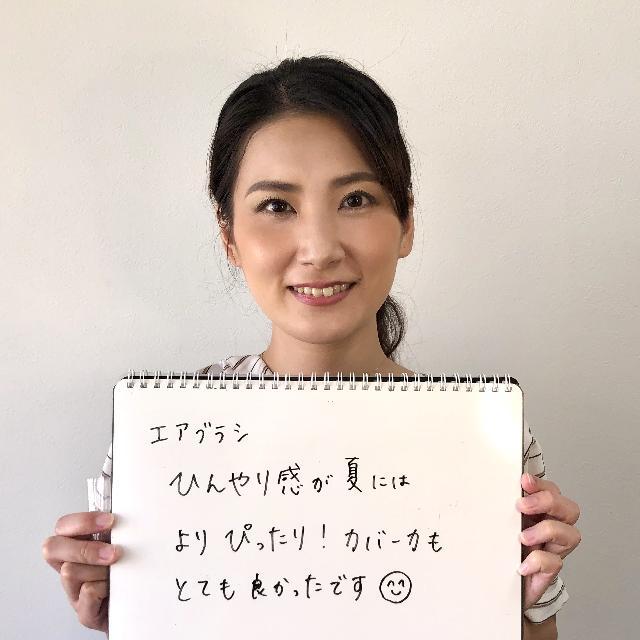 エアブラシ
ひんやり感が夏には
より ぴったり！カバー力も
とても良かったです